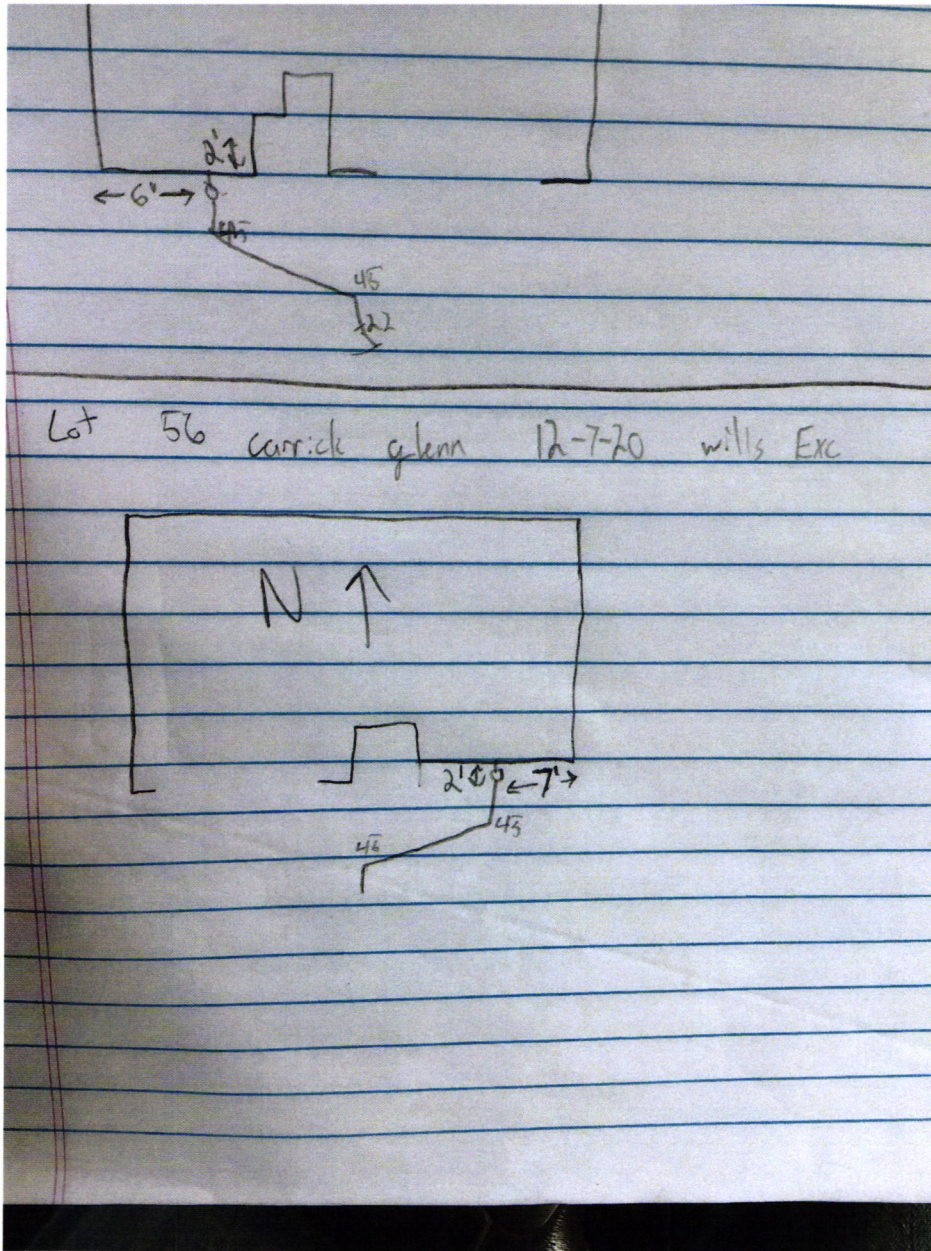 2'
← 6' →
45
45
22
Lot 56 carrick glenn 12-7-20 wills Exc
N ↑
2' ← 7' →
45
45